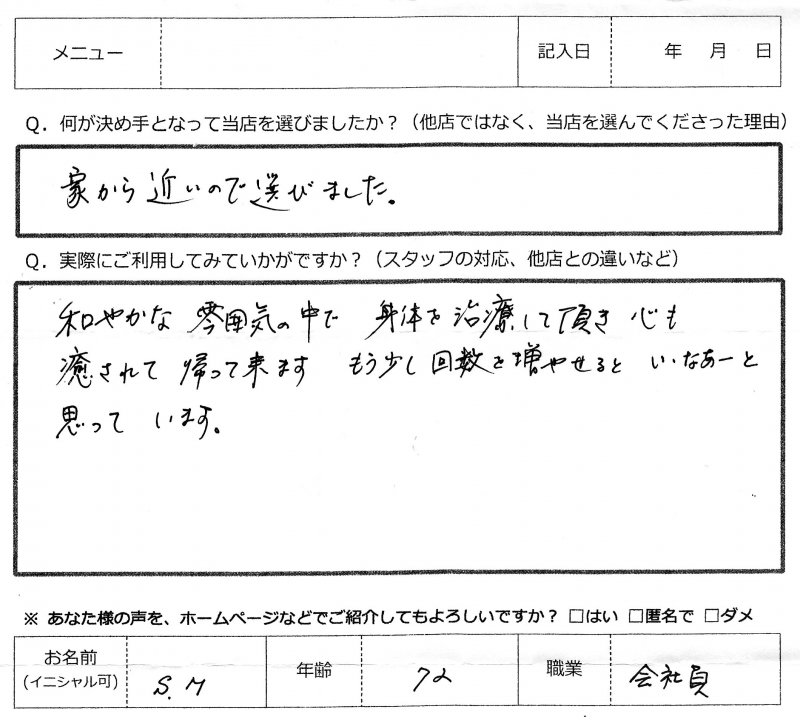 メニュー 記入日 年 月 日
Q. 何が決め手となって当店を選びましたか？（他店ではなく、当店を選んでくださった理由）
家から近いので選びました。
Q. 実際にご利用してみていかがですか？（スタッフの対応、他店との違いなど）
和やかな雰囲気の中で 身体を治療して頂き心も
癒されて帰って来ます もう少し回数を増やせるといいなあーと
思っています。
※ あなた様の声を、ホームページなどでご紹介してもよろしいですか？ □はい □匿名で □ダメ
お名前 (イニシャル可) S.M 年齢 72 職業 会社員